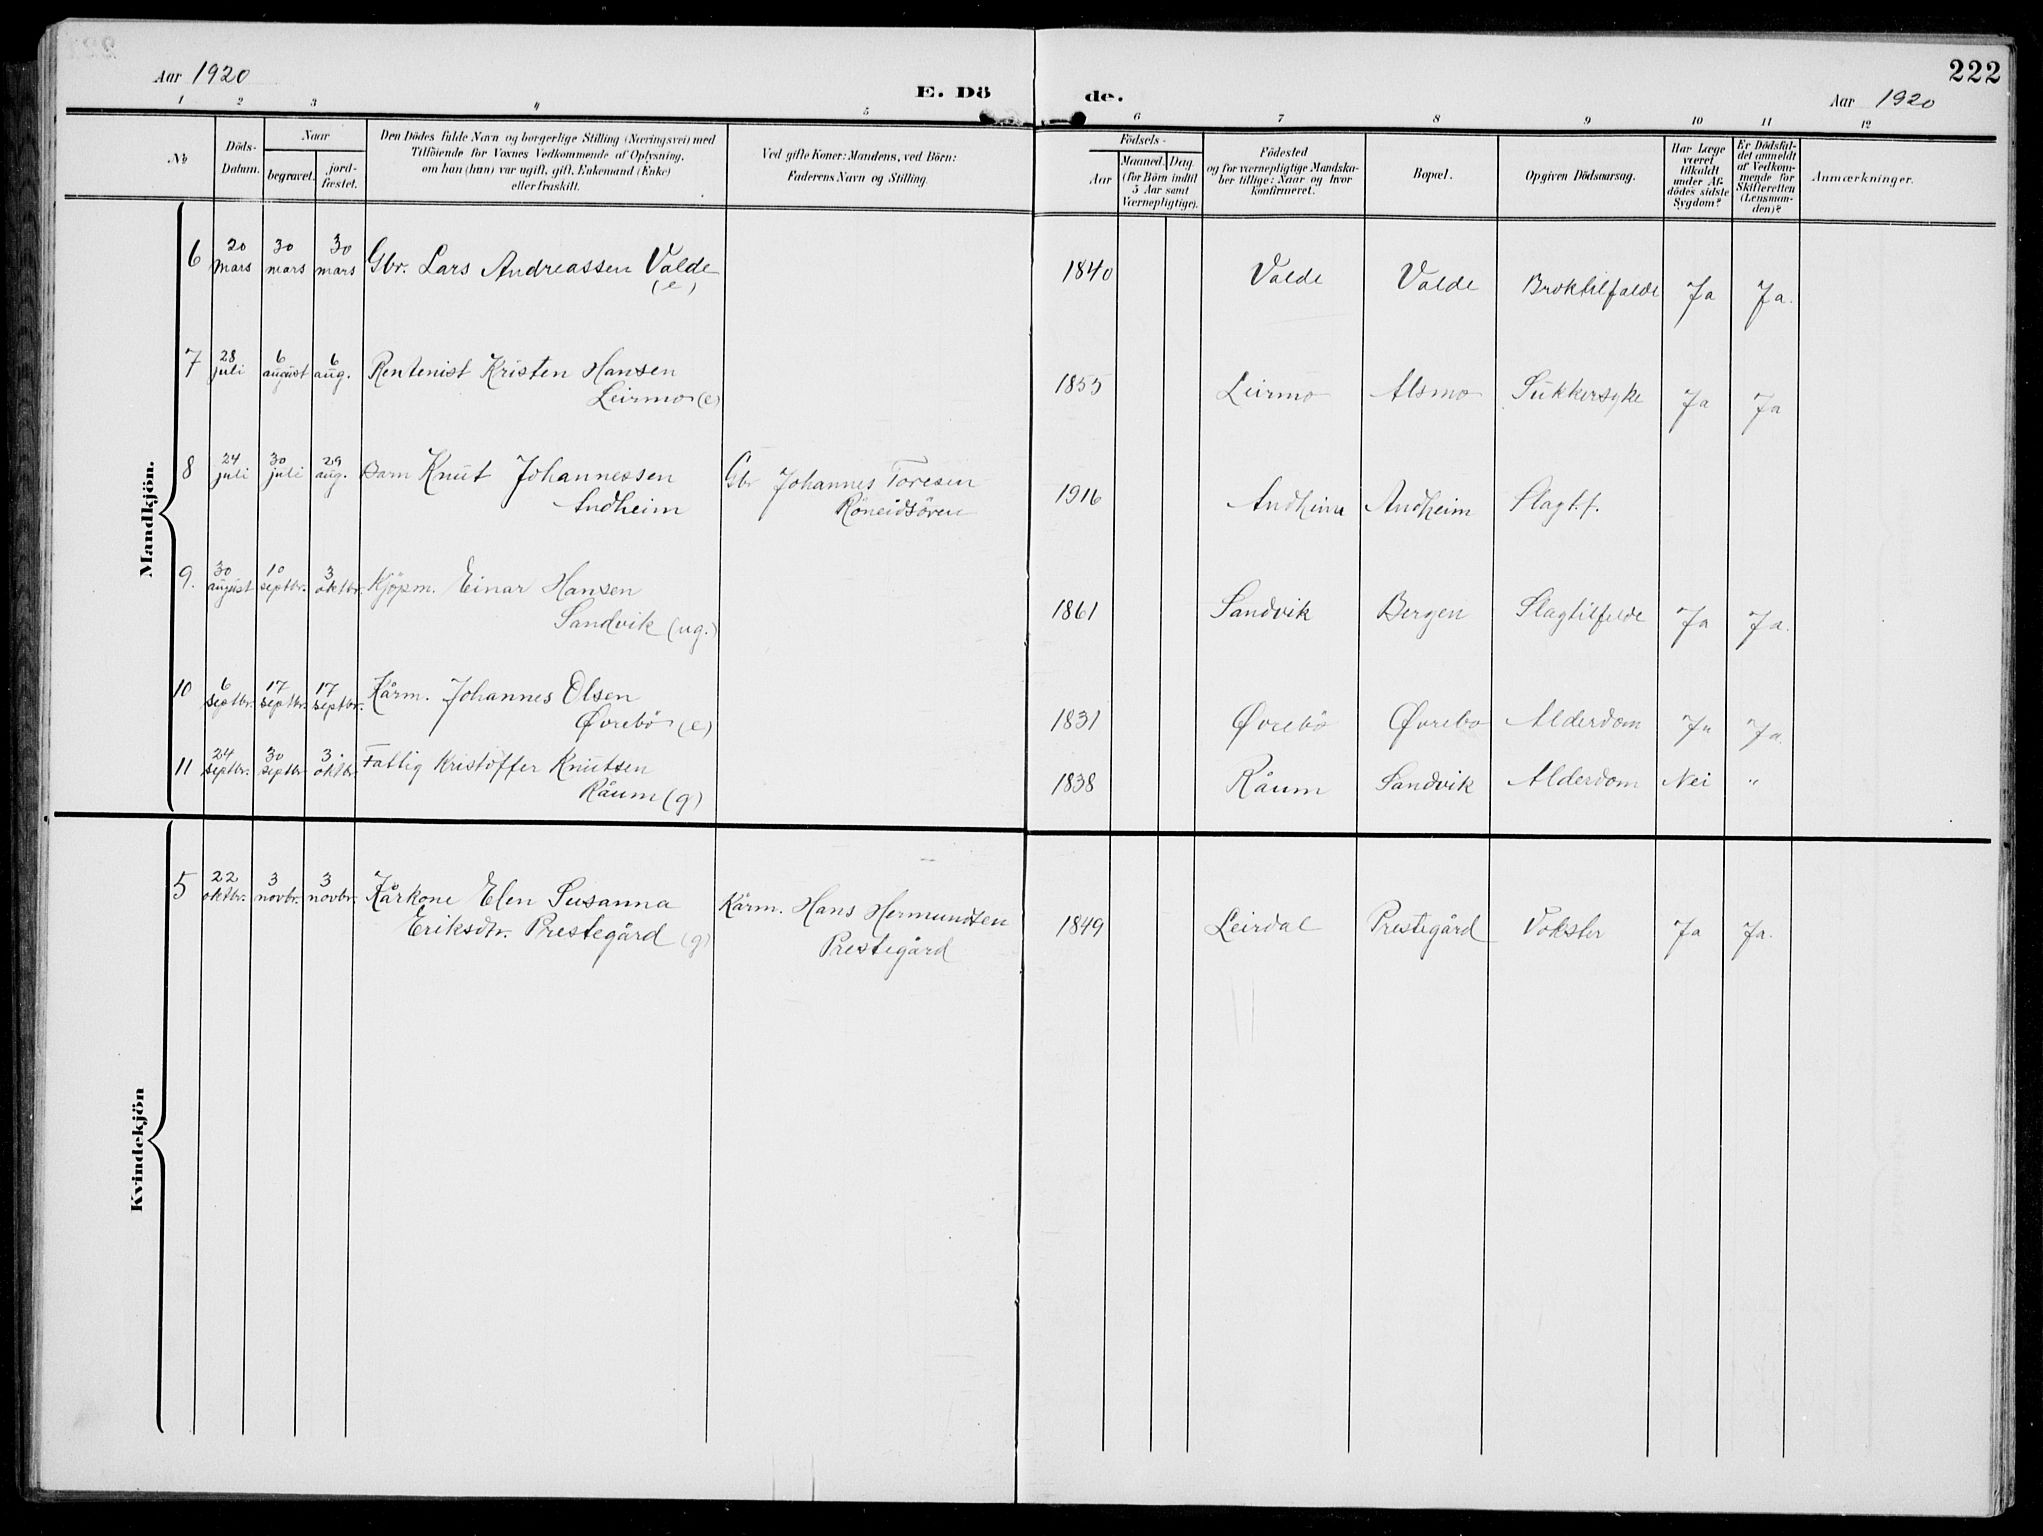 Aar 1920
E. Dö
de.
222
Aar 1920
1 2 3 4 5 6 7 8 9 10 11 12
No
Döds-
Datum.
Naar
begravet.
jord-
fæstet.
Den Dödes fulde Navn og borgerlige Stilling (Næringsvei) med
Tilföiende for Voxnes Vedkommende af Oplysning,
om han (hun) var ugift, gift, Enkemand (Enke)
eller fraskilt.
Ved gifte Koner: Mandens, ved Börn:
Faderens Navn og Stilling.
Födsels-
Aar
Maaned. Dag.
(for Börn indtil
5 Aar samt
Værnepligtige).
Födested
og for værnepligtige Mandska-
ber tillige: Naar og hvor
konfirmeret.
Bopæl.
Opgiven Dödsaarsag.
Har Læge
været
tilkaldt
under Af-
dödes sidste
Sygdom?
Er Dödsfal-
det anmeldt
af Vedkom-
mende for
Skifteretten
(Lensman-
den)?
Anmærkninger.
Mandkjön.
6 20 mars 30 mars 30 mars Gbr. Lars Andreassen Valde 1840 Valde Valde Broktilfelde Ja Ja.
(e)
7 28 juli 6 august 6 aug. Rentenist Kristen Hansen 1855 Leirmo Alsmo Sukkersyke Ja Ja
Leirmo (e)
8 24 juli 30 juli 29 aug. Barn Knut Johannessen Gbr Johannes Toresen 1916 Andheim Andheim Slagt.f.
Andheim Röneidsören
9. 30 august 10 septbr. 3 oktbr. Kjöpm. Einar Hansen 1861 Sandvik Bergen Slagtilfelde Ja Ja.
Sandvik (ug.)
10 6 septbr. 17 septbr. 17 septbr. Kårm. Johannes Olsen 1831 Øvrebö Øvrebo Alderdom Ja Ja.
Øvrebö (e)
11 24 septbr. 30 septbr 3. oktbr. Fattig Kristoffer Knutsen 1838 Råum Sandvik Alderdom Nei "
Råum (g)
Kvindekjön
5 22 oktbr. 3 novbr. 3 novbr. Kårkone Elen Susanna Kårm. Hans Hermundsen 1849 Leirdal Prestegård Vokster Ja Ja.
Eriksdtr. Prestegård (g) Prestegård